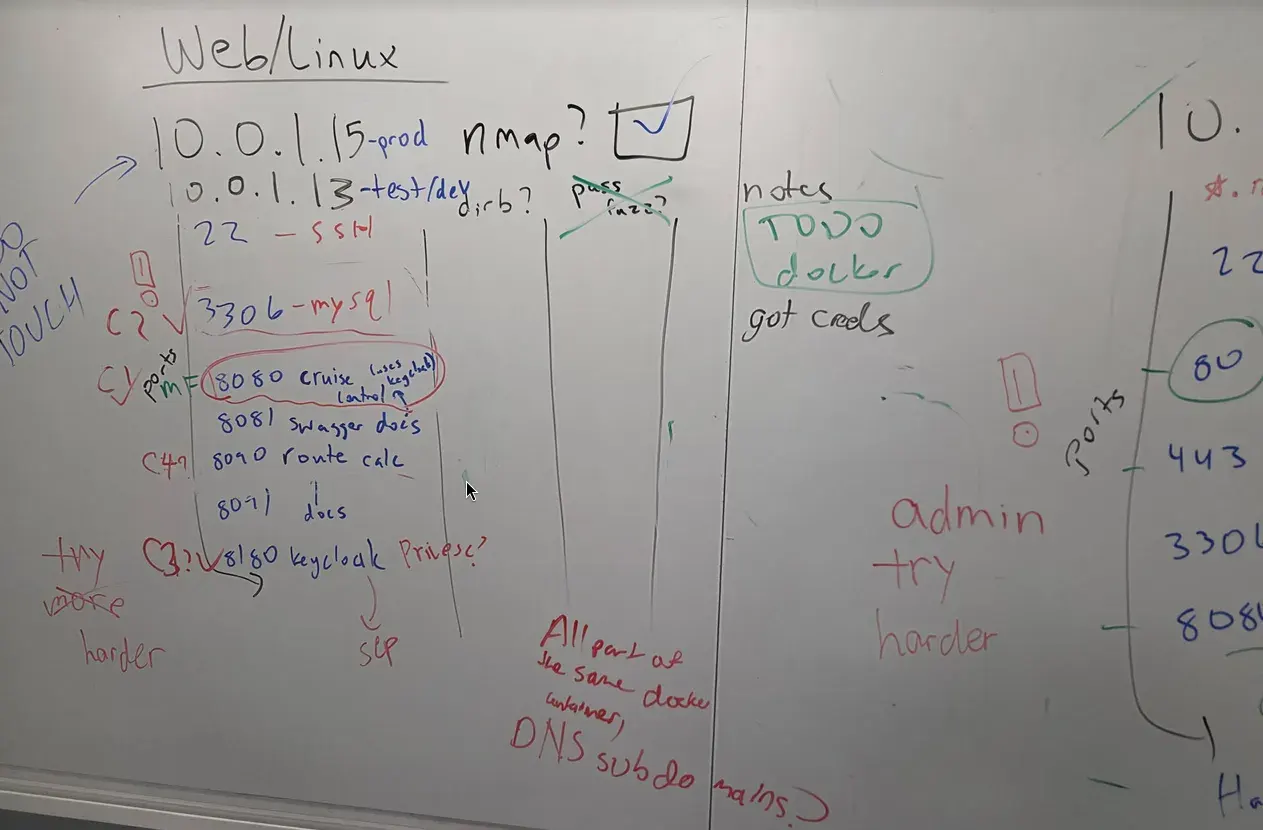 Web/Linux
10.0.1.15-prod nmap?
10.0.1.13-test/dev dirb? pass fuzz?
DO NOT TOUCH
22 - SSH
C2? 3306-mysql
C1 Ports 8080 cruise control (uses keycloak)
8081 swagger docs
C4? 8090 route calc
8091 docs
C3? 8180 keycloak Privesc?
try
more
harder
scp
All part of
the same docker
container,
DNS subdomains?
notes
TODO
docker
got creds
admin
try
harder
10.
22
Ports
80
443
330
808
Ha